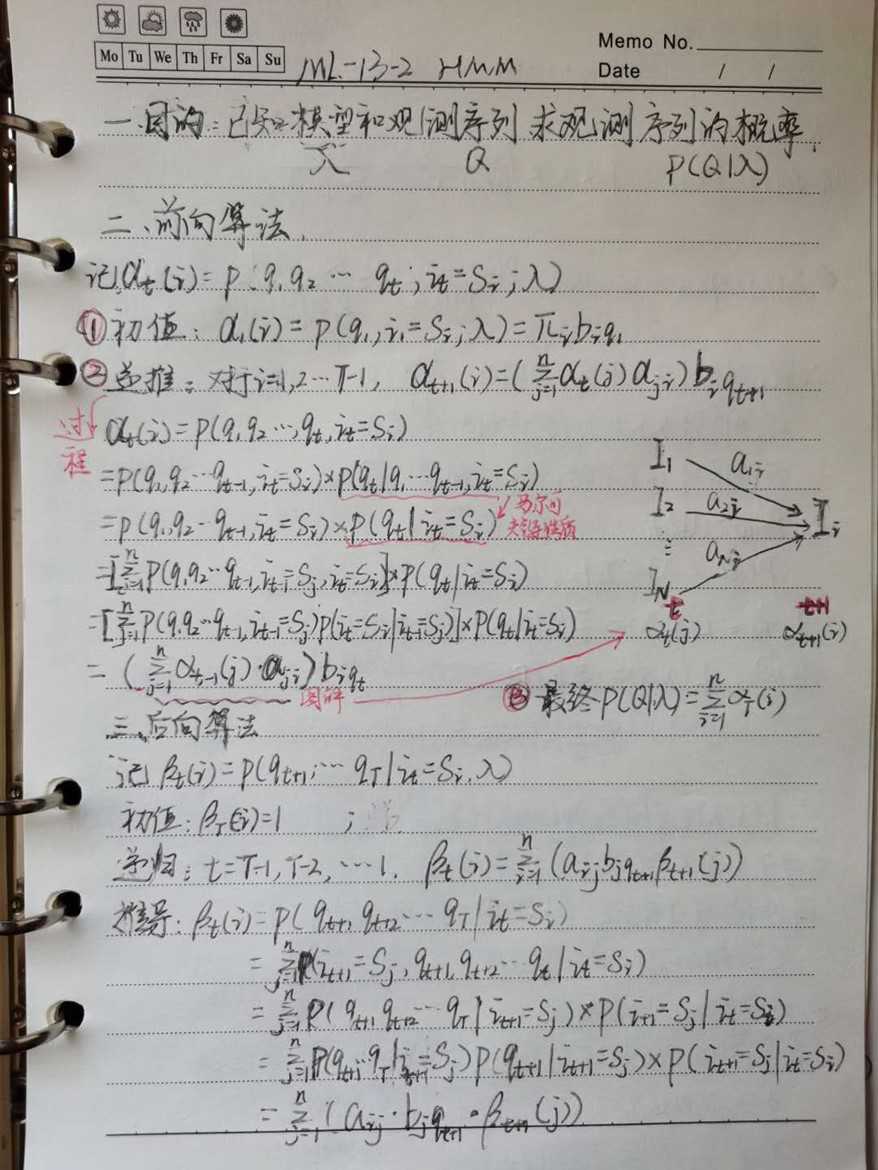 Mo Tu We Th Fr Sa Su
Memo No.
Date / /
ML-13-2 HMM
一.目的:已知模型和观测序列 求观测序列的概率.
λ Q P(Q|λ)
二、前向算法.
记 αt(i)=P(q1q2…qt,it=Si;λ)
①初值:α1(i)=P(q1,i1=Si;λ)=πibiq1
②递推:对于i=1,2…T-1, αt+1(i)=(Σj=1^n αt(j)aji)biqt+1
过程
αt(i)=P(q1q2…,qt,it=Si)
=P(q1,q2…qt-1,it=Si)×P(qt|q1…qt-1,it=Si)
=P(q1,q2…qt-1,it=Si)×P(qt|it=Si)
马尔可夫
性质
=[Σ^n P(q1,q2…qt-1,it-1=Sj,it=Si]×P(qt|it=Si)
=[Σj=1^n P(q1q2…qt-1,it-1=Sj)P(it=Si|it-1=Sj)]×P(qt|it=Si)
=(Σj=1^n αt-1(j)·aji)biqt
图解
I1 a1i
I2 a2i Ii
⋮
IN aNi
t t+1
αt(j) αt+1(i)
③最终P(Q|λ)=Σi=1^n αT(i)
三、后向算法
记 βt(i)=P(qt+1,…qT|it=Si,λ)
初值:βT(i)=1 ;
递归:t=T-1,T-2,…1. βt(i)=Σi=1^n(aijbjqt+1βt+1(j))
推导:βt(i)=P(qt+1qt+2…qT|it=Si)
=Σj=1^n P(it+1=Sj,qt+1,qt+2…qt|it=Si)
=Σj=1^n P(qt+1qt+2…qT|it+1=Sj)×P(it+1=Sj|it=Si)
=Σj=1^n P(qt+1…qT|it+1=Sj)P(qt+1|it+1=Sj)×P(it+1=Sj|it=Si)
=Σj=1^n(aij·bjqt+1·βt+1(j))